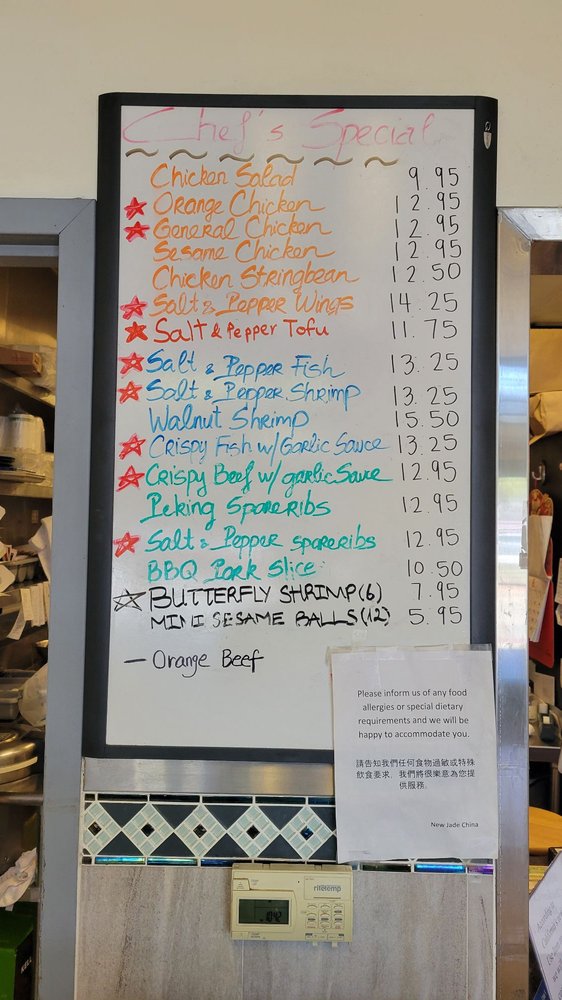 Chef's Special
Chicken Salad 9.95
Orange Chicken 12.95
General Chicken 12.95
Sesame Chicken 12.95
Chicken Stringbean 12.50
Salt & Pepper Wings 14.25
Salt & Pepper Tofu 11.75
Salt & Pepper Fish 13.25
Salt & Pepper Shrimp 13.25
Walnut Shrimp 15.50
Crispy Fish w/ Garlic Sauce 13.25
Crispy Beef w/ garlic Sauce 12.95
Peking Spareribs 12.95
Salt & Pepper spareribs 12.95
BBQ Pork Slice 10.50
BUTTERFLY SHRIMP (6) 7.95
MINI SESAME BALLS (12) 5.95
— Orange Beef
Please inform us of any food
allergies or special dietary
requirements and we will be
happy to accommodate you.
請告知我們任何食物過敏或特殊
飲食要求, 我們將很樂意為您提
供服務.
New Jade China
ritetemp